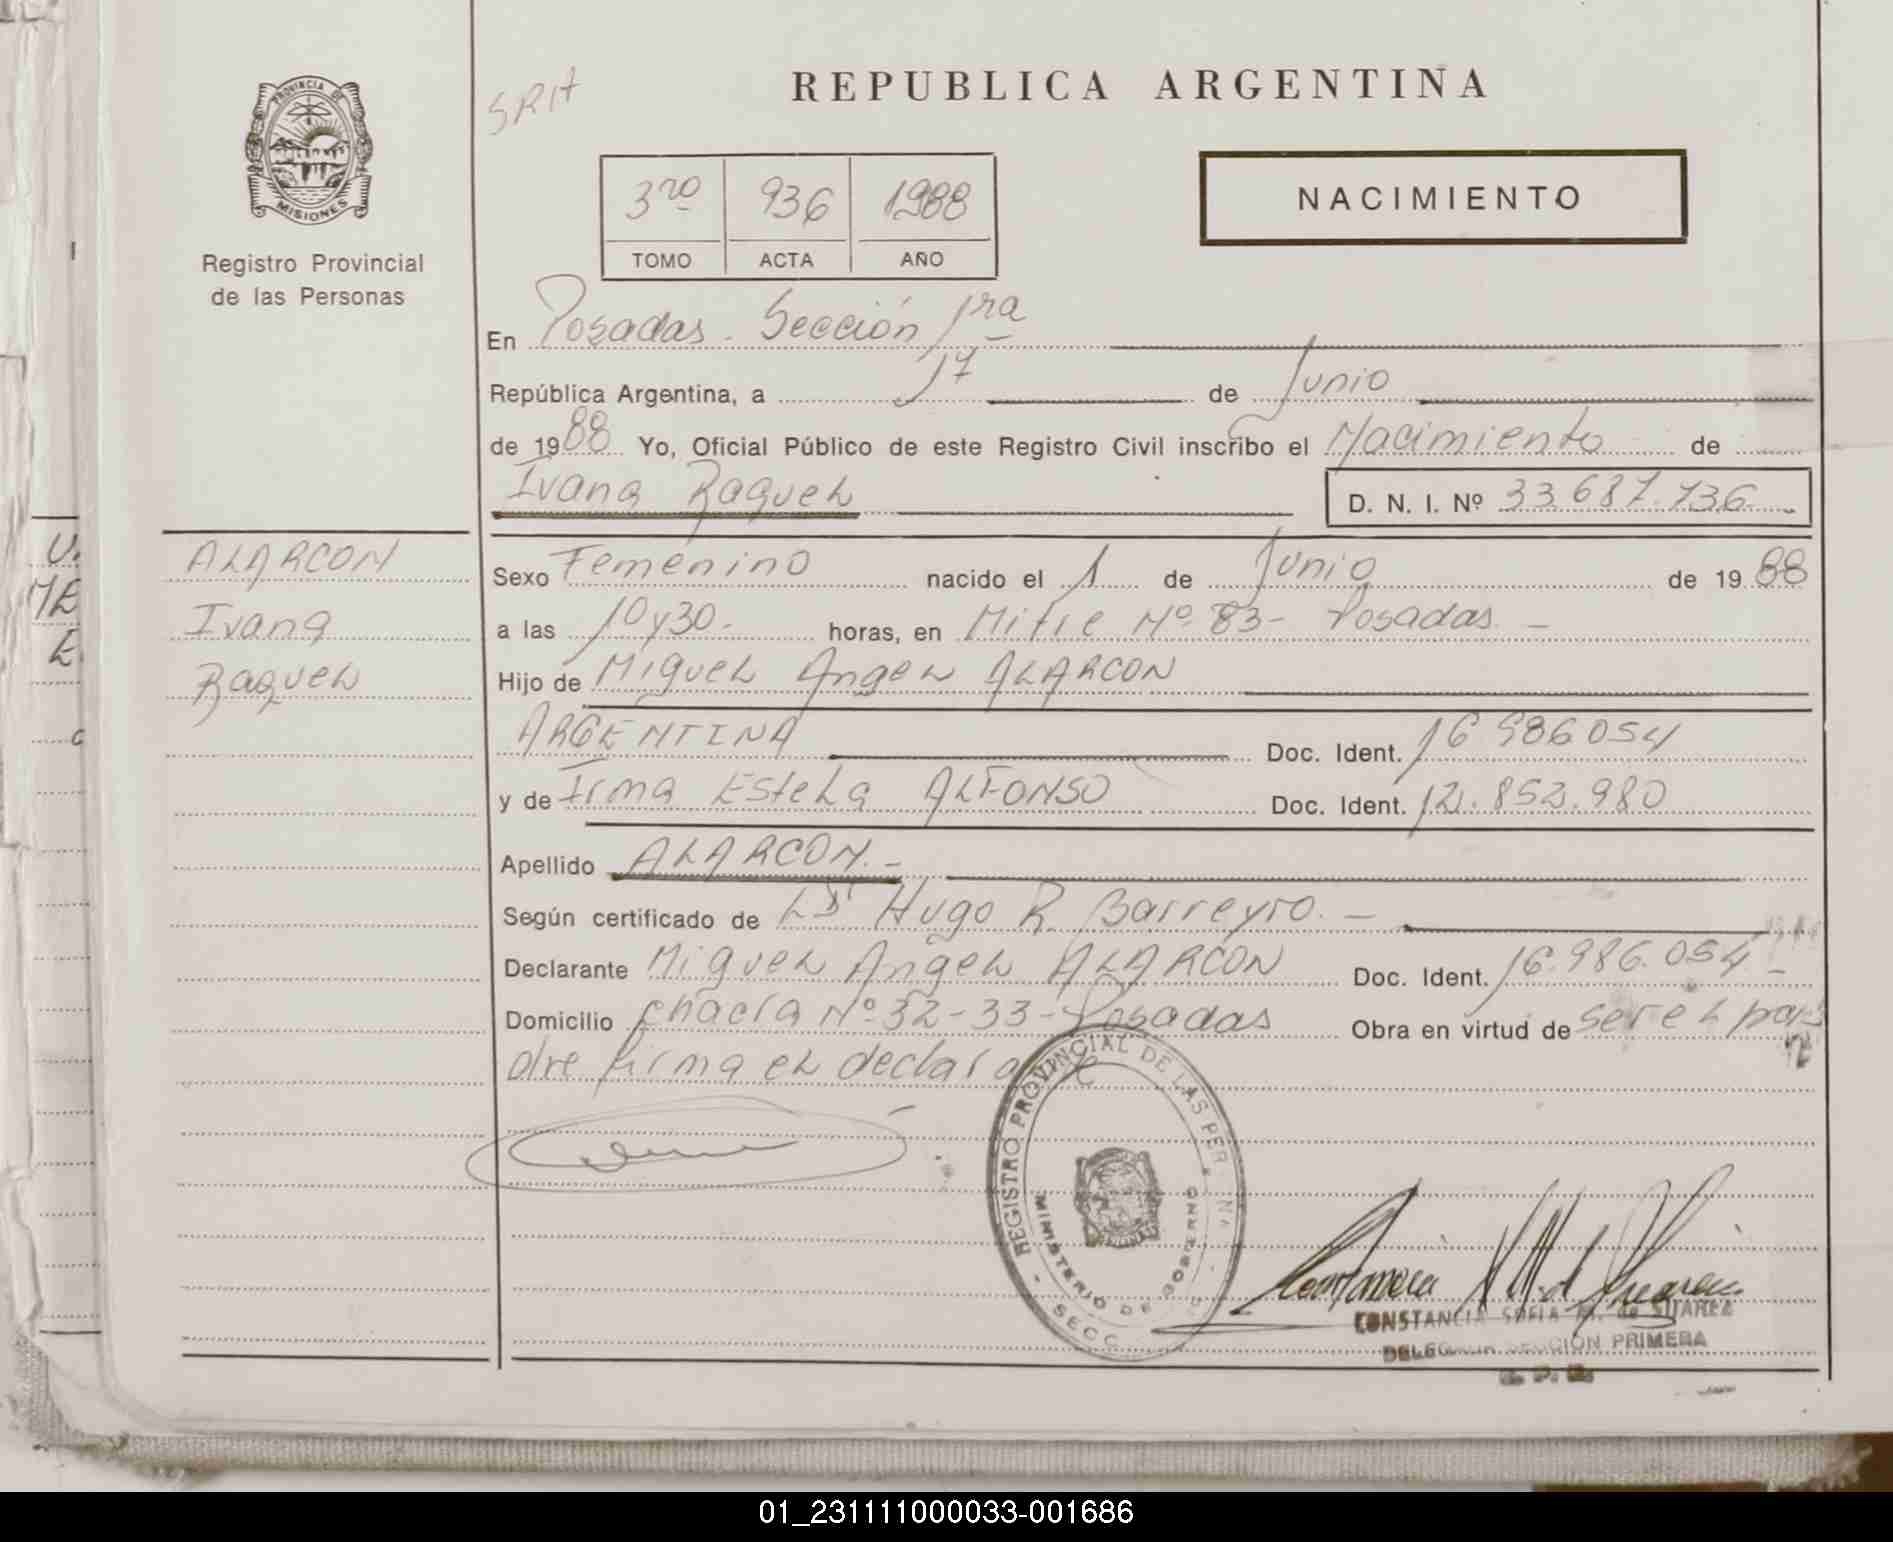 PROVINCIA DE
MISIONES
Registro Provincial
de las Personas
SRIA
REPUBLICA ARGENTINA
3ro 936 1988
TOMO ACTA AÑO
NACIMIENTO
En Posadas. Sección 1ra
República Argentina, a 17 de Junio
de 1988 Yo, Oficial Público de este Registro Civil inscribo el Nacimiento de
Ivana Raquel D. N. I. Nº 33.687.736
ALARCON
Ivana
Raquel
Sexo Femenino nacido el 1 de Junio de 1988
a las 10y30. horas, en Mitre Nº 83- Posadas. -
Hijo de Miguel Angel ALARCON
ARGENTINA Doc. Ident. 16 986054
y de Irma Estela ALFONSO Doc. Ident. 12.852.980
Apellido ALARCON.-
Según certificado de Hugo R. Barreyro. -
Declarante Miguel Angel ALARCON Doc. Ident. 16.986.054-
Domicilio chacra Nº 32-33-Posadas Obra en virtud de ser el pa
dre firma el declarante
REGISTRO PROVINCIAL DE LAS PER
MINISTERIO DE GOBIERNO
SECC
CONSTANCIA SOFIA M. de SUAREZ
DELEGADA SECCION PRIMERA
01_231111000033-001686